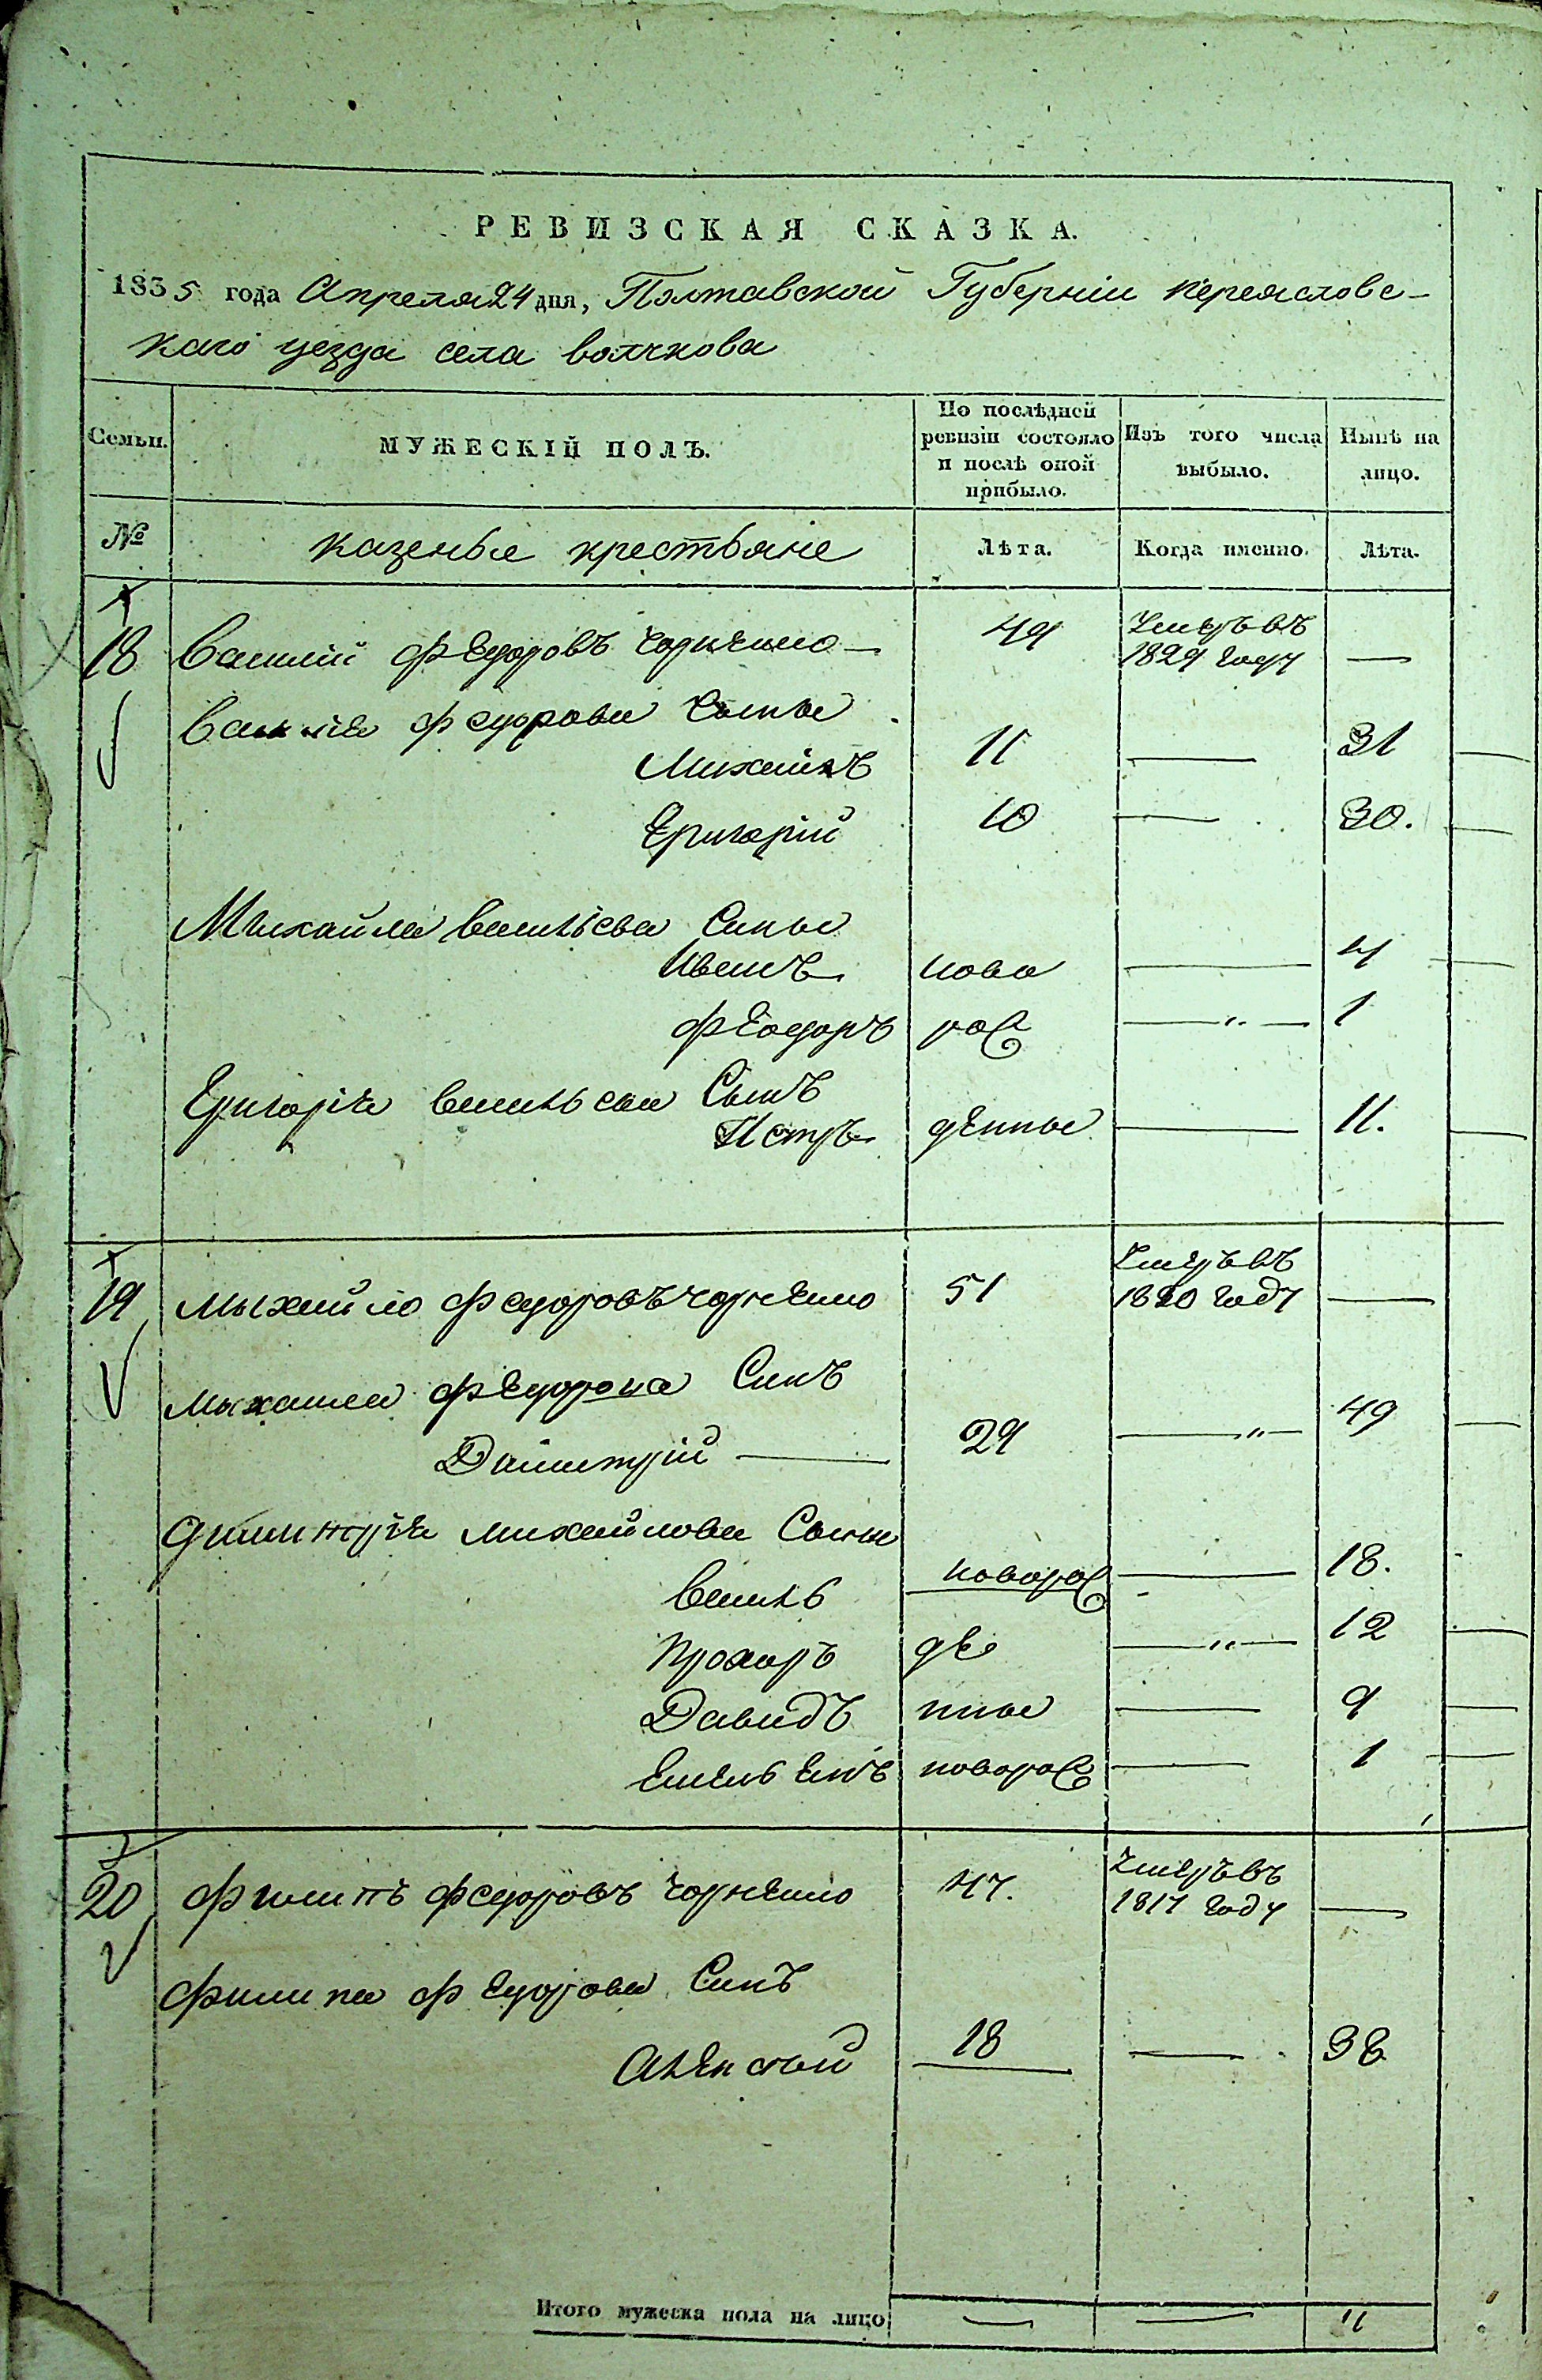 РЕВИЗСКАЯ СКАЗКА.
1835 года Апреля 24 дня, Полтавской Губерніи Переясловс-
каго уезда села волчкова
Семьи.
МУЖЕСКІЙ ПОЛЪ.
По послѣдней ревизіи состояло и послѣ оной прибыло.
Изъ того числа выбыло.
Нынѣ на лицо.
№ казеные крестьяне Лѣта. Когда именно. Лѣта.
18 Василий Федоровъ 49 Умеръ въ 1829 году —
Василя Федорова Сыны
Михайлъ 11 — 31
Григорий 10 — 30.
Михайла Васильева Сины
Иванъ ново — 4
Феодоръ рож — " — 1
Григория Васильева Сынъ
Петръ денные — 11.
19 Мыхайло Федоровъ 51 Умеръ въ 1820 году —
Михаила Федорова Синъ
Димитрій — 29 — " — 49
Димитрія Михайлова Сыны
Василь новорож — 18.
Прохоръ де — " — 12
Давидъ нные — 9
Емельянъ новорож — 1
20 Филипъ Федоровъ 47. Умеръ въ 1817 году —
Филипа Федорова Синъ
Алексый 18 — 38
Итого мужеска пола на лицо — — 11